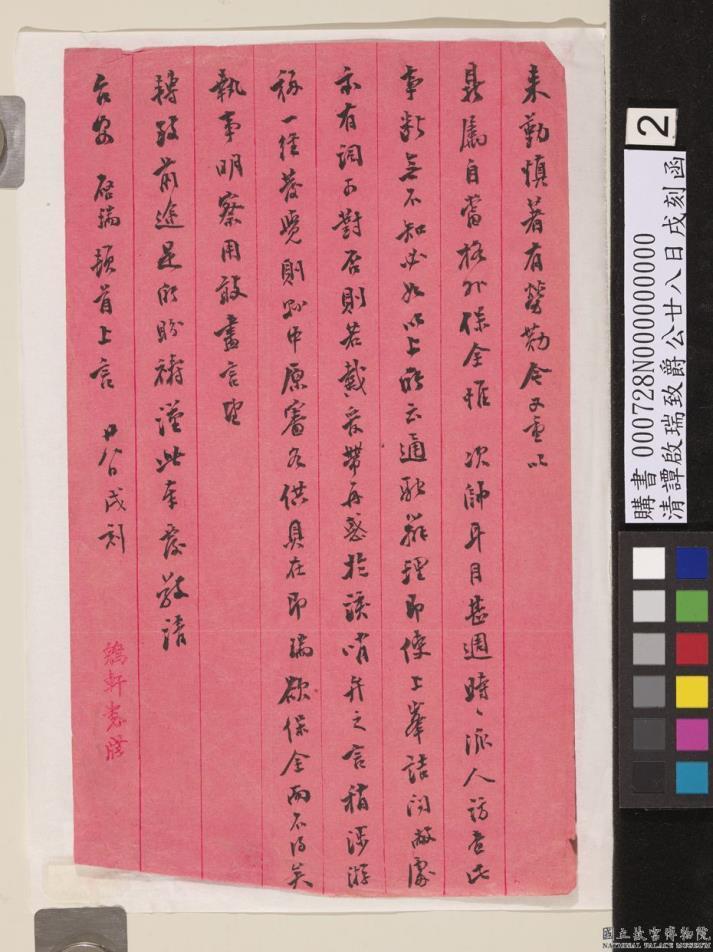 來勤慎著有勞勩令又重以
鼎屬自當格外保全惟 次帥耳目甚週時々派人訪查此
事斷無不知必如以上所云通融辦理即使上峯詰問敝處
亦有詞可對否則若戴受帶再惑於誤哨弁之言稍涉游
移一經發覺則
原審名供具在即瑞欲保全而不得矣
執事明察用敢盡言望
轉致前途是所盼禱謹此奉覆敬請
台安 啟瑞頓首上言 廿八日戌刻
鶴軒
2
購書 000728N000000000
清譚啟瑞致爵公廿八日戌刻函
國立故宮博物院
NATIONAL PALACE MUSEUM